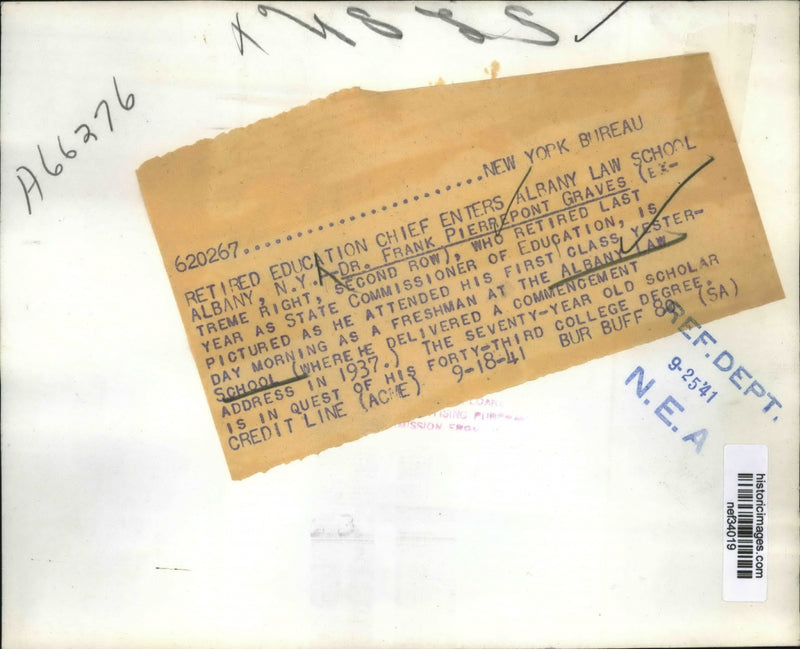 A66276
620267..............................NEW YORK BUREAU
RETIRED EDUCATION CHIEF ENTERS ALBANY LAW SCHOOL
ALBANY, N.Y.--DR. FRANK PIERREPONT GRAVES (EX-
TREME RIGHT, SECOND ROW), WHO RETIRED LAST
YEAR AS STATE COMMISSIONER OF EDUCATION, IS
PICTURED AS HE ATTENDED HIS FIRST CLASS YESTER-
DAY MORNING AS A FRESHMAN AT THE ALBANY LAW
SCHOOL (WHERE HE DELIVERED A COMMENCEMENT
ADDRESS IN 1937.) THE SEVENTY-YEAR OLD SCHOLAR
IS IN QUEST OF HIS FORTY-THIRD COLLEGE DEGREE.
CREDIT LINE (ACME) 9-18-41 BUR BUFF 80 (SA)
REF. DEPT.
9-25'41
N. E. A
historicimages.com
nef34019